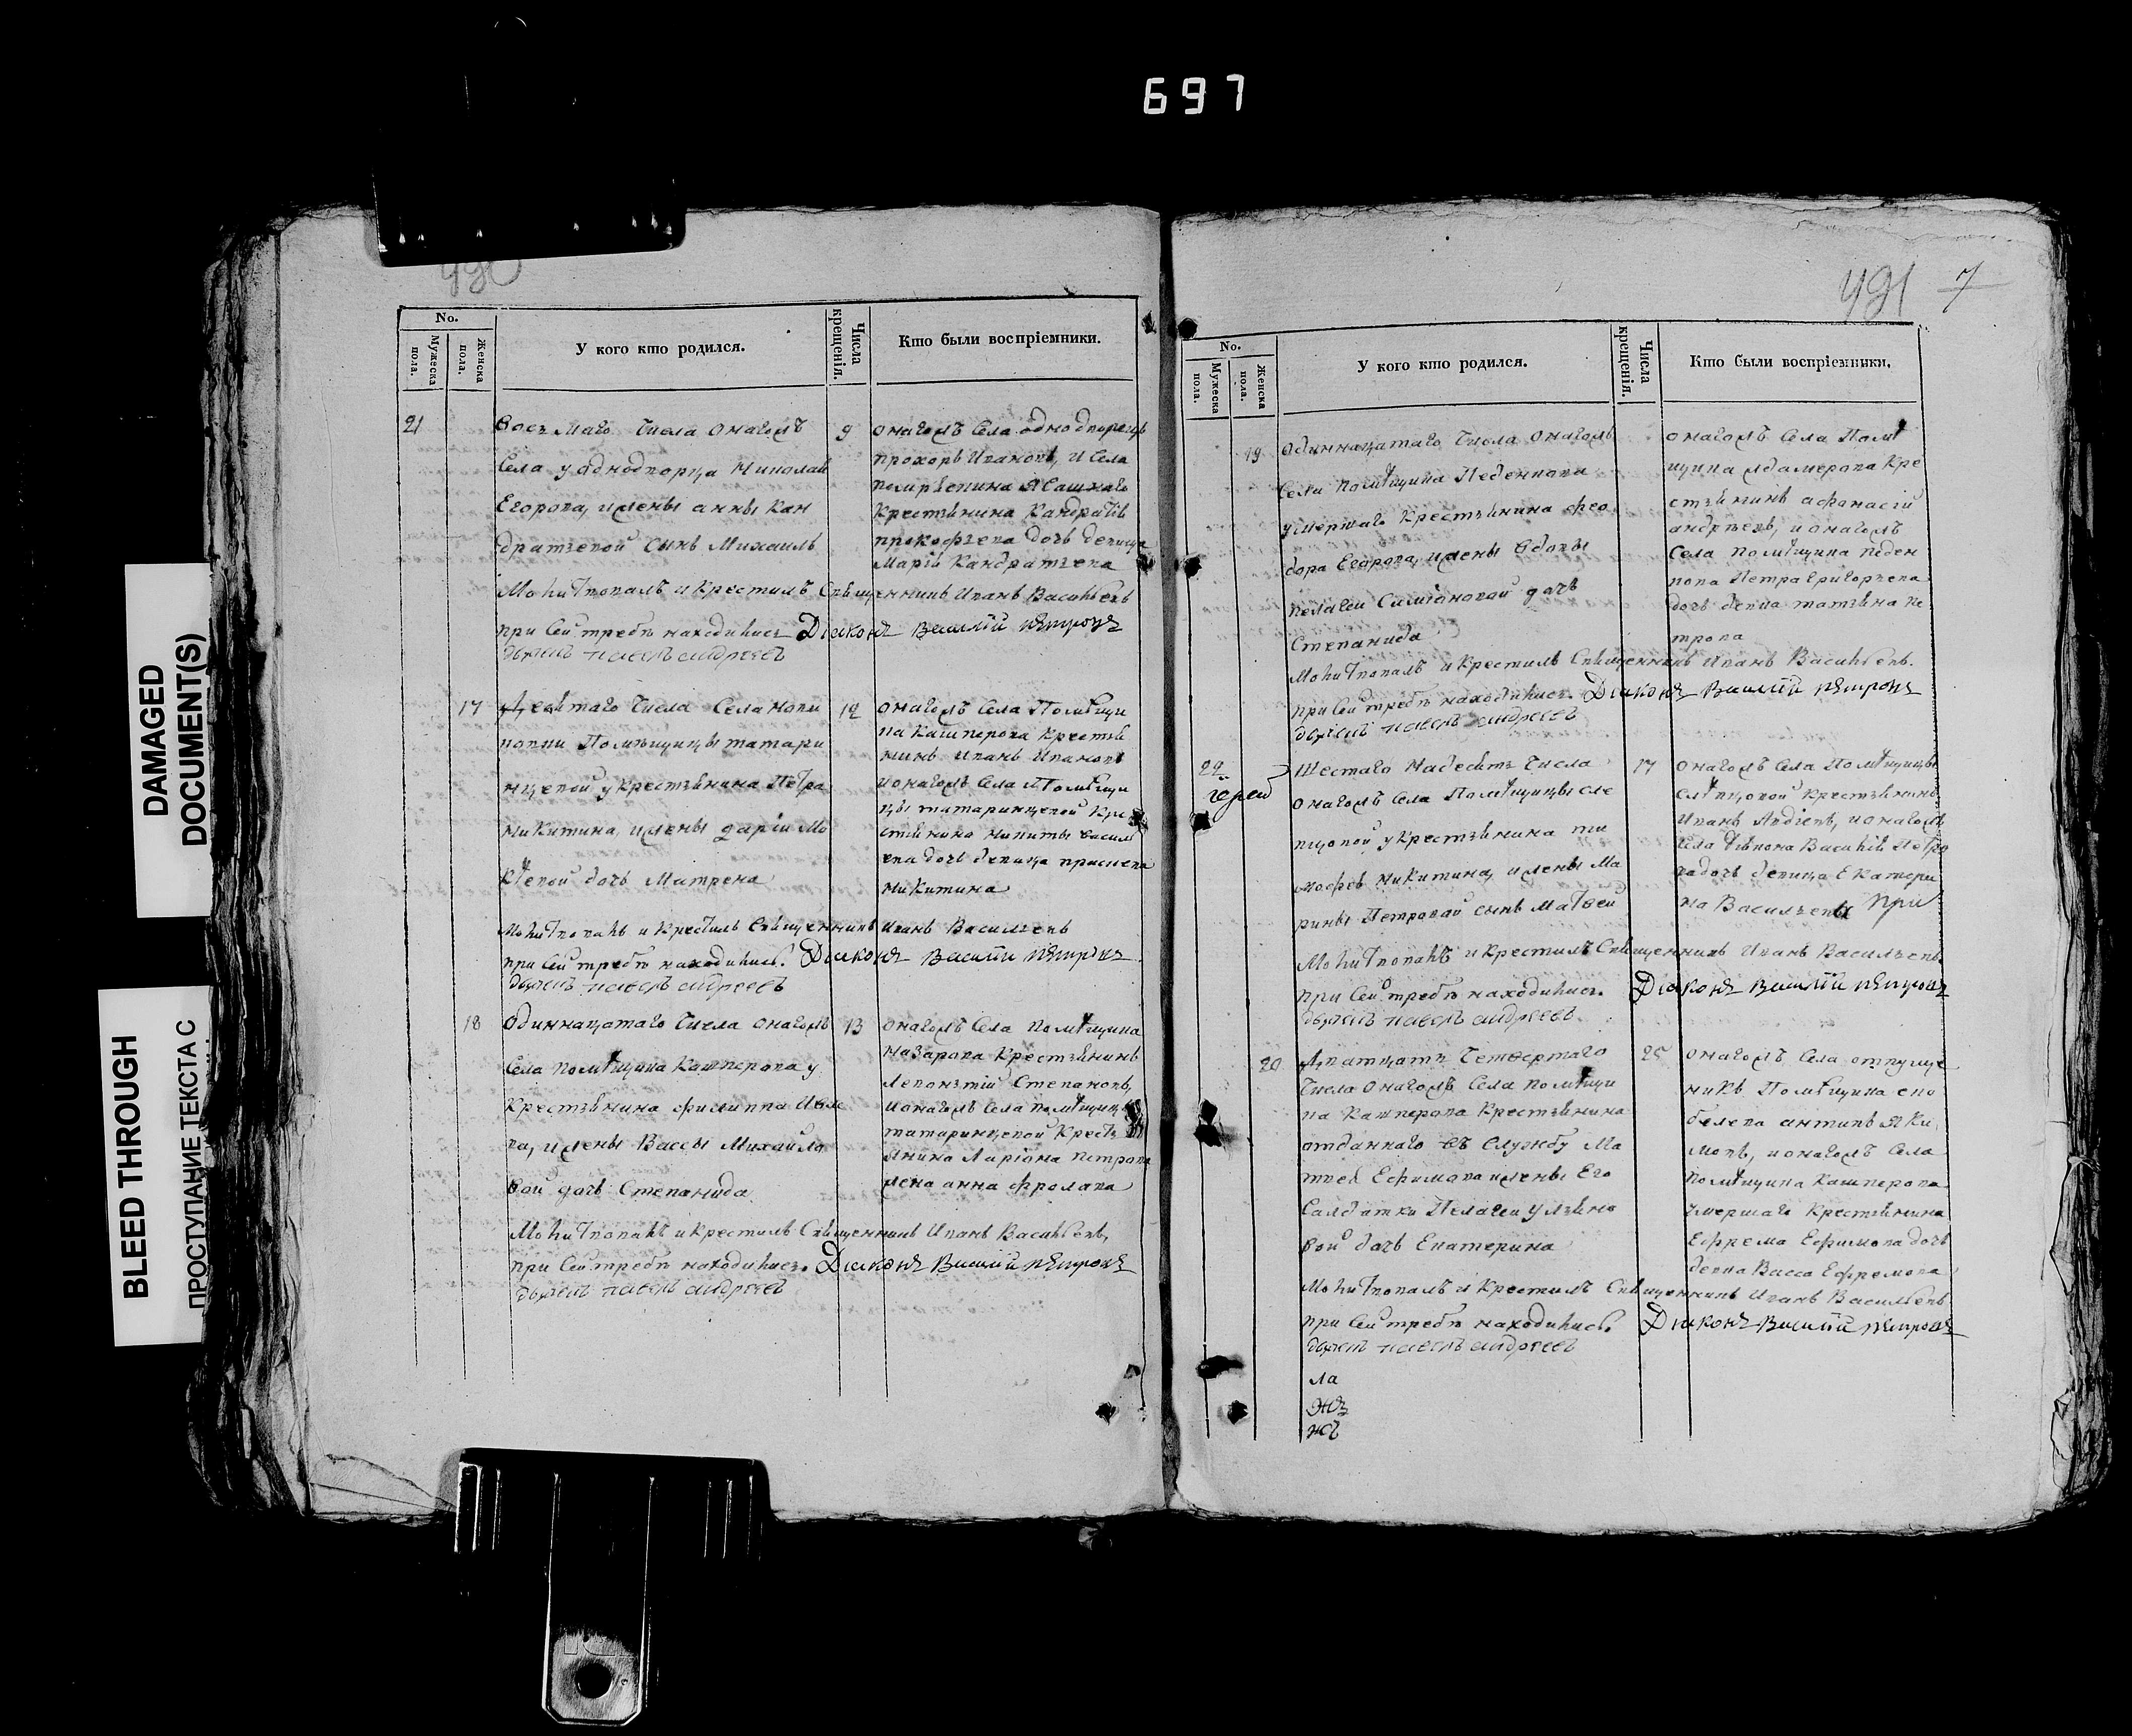 697
DAMAGED
DOCUMENT(S)
BLEED THROUGH
ПРОСТУПАНИЕ ТЕКСТА С
No.
Мужеска пола.
Женска пола.
У кого кто родился.
Числа крещенія.
Кто были воспріемники.
21
Восмаго Числа онагожъ
Села у аднодворца Николая
Егорова, ижены анны Кан
дратьевой сынъ Михаилъ
9
онагожъ Села однодворецъ
прохоръ Ивановъ, и Села
Крестьянина Кандратія
прокофьева дочь девица
Марія Кандратьева
Молитвовалъ и Крестилъ Священникъ Иванъ Васильевъ
при сей требѣ находились Діяконъ Василій Пѣтровъ
дьячекъ павелъ андреевъ
17
Девятаго Числа Села
Помѣщицы татари
нцевой у Крестьянина Пѣтра
Никитина, ижены даріи Мо
кѣевой дочь Матрена
12
онагожъ Села Помѣщи
ка Кашперова Крестья
нинъ Иванъ Ивановъ
ионагожъ Села Помѣщи
цы татаринцевой Кре
стьянина Никиты Васил
ева дочь девица
Никитина
Молитвовалъ и Крестилъ Священникъ Иванъ Васильевъ
при Сей требѣ находились. Діяконъ Василій Пѣтровъ
дьячекъ павелъ андреевъ
18
Одиннацатаго Числа онагожъ
Села помѣщика Кашперова у
Крестьянина филиппа Ивле
ва, ижены Вассы Михайло
вой дочь Степанида
13
онагожъ Села помѣщика
Назарова Крестьянинъ
Леонтій Степановъ,
ионагожъ Села помѣщицы
татаринцевой Кресть
янина Ларіона Петрова
жена анна фролава
Молитвовалъ и Крестилъ Священникъ Иванъ Васильевъ,
при Сей требѣ находились. Діяконъ Василій Пѣтровъ
дьячекъ павелъ андреевъ
491 7
No.
Мужеска пола.
Женска пола.
У кого кто родился.
Числа крещенія.
Кто были воспріемники.
19
Одиннацатаго Числа онагожъ
Села помѣщика Неденкова
умершаго Крестьянина фео
дора Егорова, ижены вдовы
пелагеи Симіоновой дочь
Степанида
онагожъ Села Помѣ
щика Кре
стьянинъ афонасій
андрѣевъ, и онагожъ
Села помѣщика неден
кова Петра Григорьева
дочь девка татьяна пе
трова
Молитвовалъ и Крестилъ Священникъ Иванъ Васильевъ.
при Сей требѣ находились. Діяконъ Василій Пѣтровъ
дьячекъ павелъ андреевъ
22
Шестаго Надесять Числа
онагожъ Села Помѣщицы сле
пцовой у Крестьянина ти
мофея Никитина, ижены Ма
рины Петровай сынъ Матвей
17
онагожъ Села Помѣщицы
слѣпцовой Крестьянинъ
Иванъ Авдіевъ, и онагожъ
Села дьякона Василія Пѣтро
ва дочь девица Екатери
на Васильева При
Молитвовалъ и Крестилъ Священникъ Иванъ Васильевъ
при Сей требѣ находились. Діяконъ Василій Пѣтровъ
дьячекъ павелъ андреевъ.
20
Дватцать Четвертаго
Числа онагожъ Села помѣщи
ка Кашперова Крестьянина
отданнаго въ Службу Ма
твея Ефимова ижены Его
Салдатки Пелагеи Ульяно
вой дочь Екатерина
25
онагожъ Села отпуще
никъ Помѣщика ско
белева антипъ Яки
мовъ, и онагожъ Села
помѣщика Кашперова
умершаго Крестьянина
Ефрема Ефимова дочь
девка Васса Ефремова
Молитвовалъ и Крестилъ Священникъ Иванъ Васильевъ
при Сей требѣ находились. Діяконъ Василій Пѣтровъ
дьячекъ павелъ андреевъ
ла